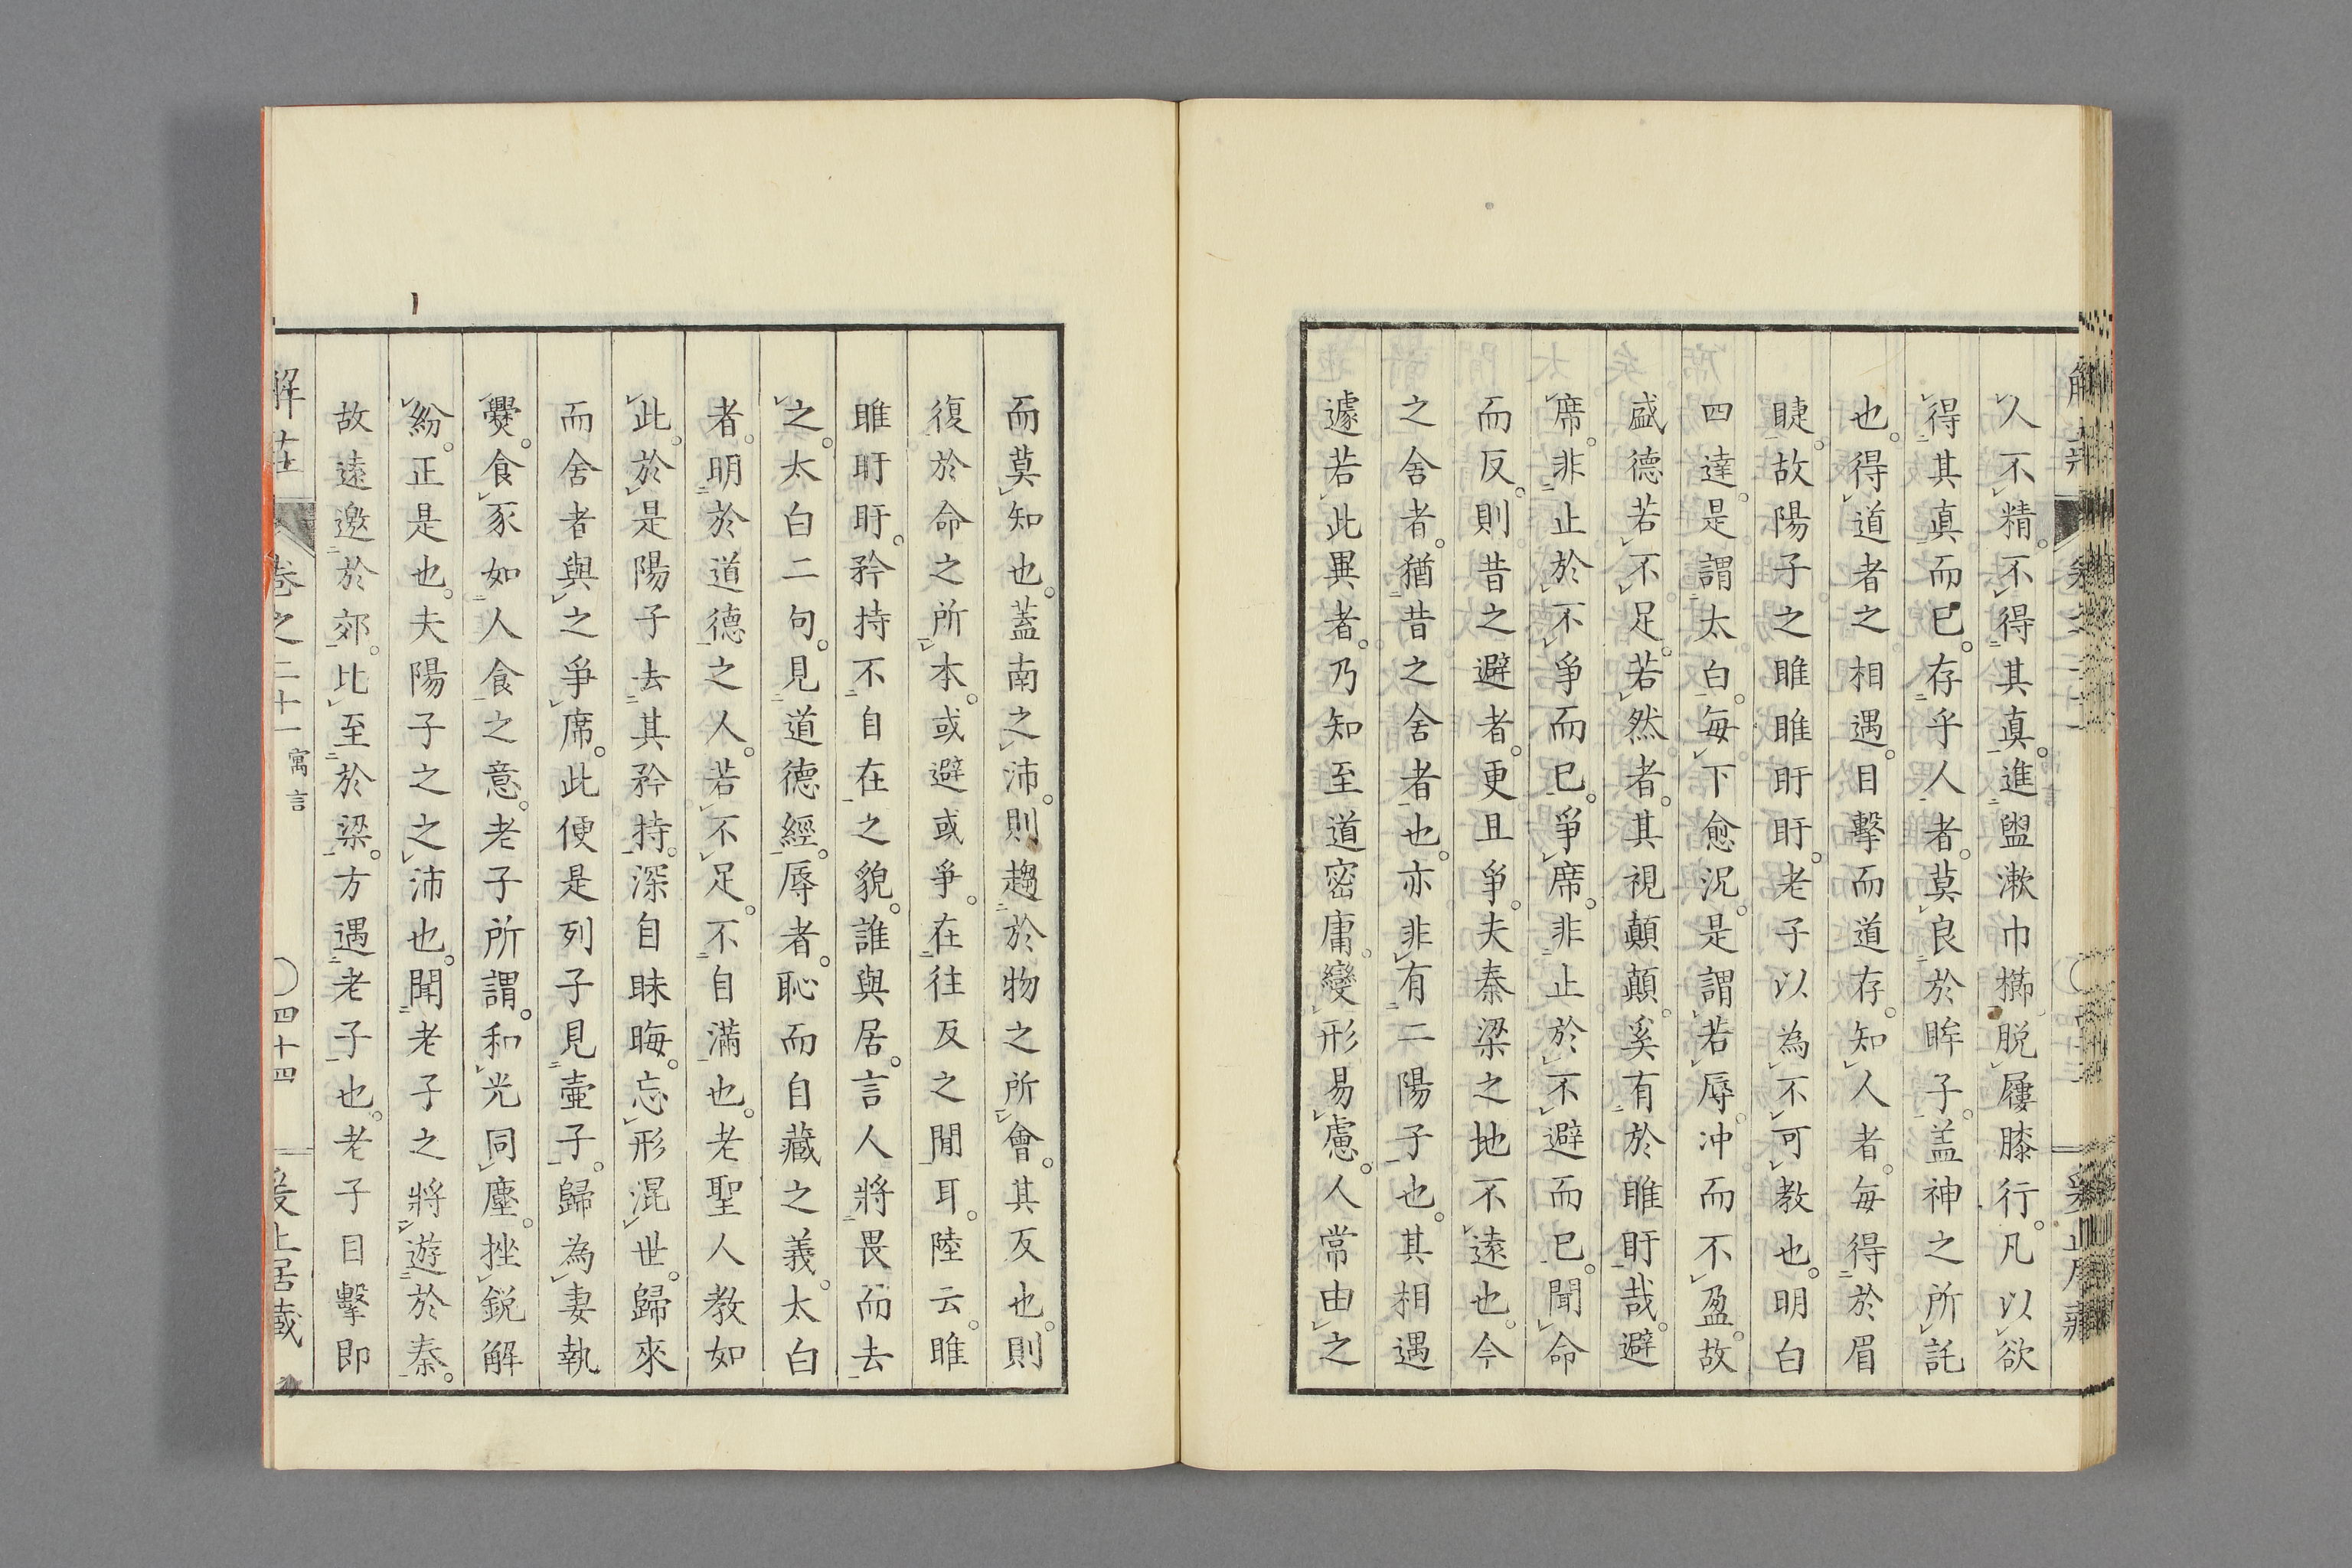 人不精。不得其真。進盥漱巾櫛脫屨膝行。凡以欲
得其真而已。存乎人者。莫良於眸子。盖神之所託
也。得道者之相遇。目擊而道存。知人者。每得於眉
睫。故陽子之睢睢盱盱。老子以為不可教也。明白
四達。是謂太白。每下愈況。是謂若辱。冲而不盈。故
盛德若不足。若然者。其視顛顛。奚有於睢盱哉。避
席。非止於不爭而已。爭席。非止於不避而已。聞命
而反。則昔之避者。更且爭。夫秦梁之地不遠也。今
之舍者。猶昔之舍者也。亦非有二陽子也。其相遇
遽若此異者。乃知至道密庸。變形易慮。人常由之
而莫知也。蓋南之沛。則趨於物之所會。其反也。則
復於命之所本。或避或爭。在往反之間耳。陸云。睢
睢盱盱。矜持不自在之貌。誰與居。言人將畏而去
之。太白二句。見道德經。辱者。恥而自藏之義。太白
者。明於道德之人。若不足。不自滿也。老聖人教如
此。於是陽子去其矜持。深自昧晦。忘形混世。歸來
而舍者與之爭席。此便是列子見壺子。歸為妻執
爨。食豕如人食之意。老子所謂。和光同塵。挫銳解
紛。正是也。夫陽子之之沛也。聞老子之將遊於秦。
故遠邀於郊。比至於梁。方遇老子也。老子目擊即
解莊 卷之二十一 寓言 四十四